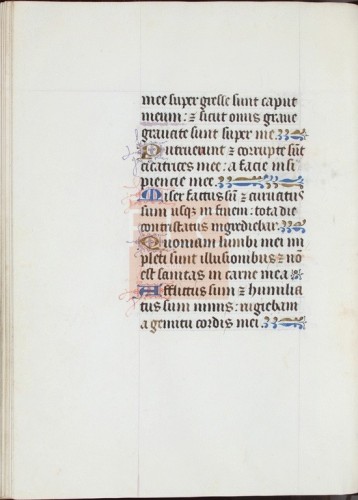 mee super gresse sunt caput
meum: ⁊ sicut onus graue
grauate sunt super me.
Putruerunt ⁊ corrupte sūt
cicatrices mee: a facie insi
piencie mee.
Miser factus sū ⁊ curuatus
sum usq̄ in finem: tota die
contristatus ingrediebar.
Quoniam lumbi mei im
pleti sunt illusionibus: ⁊ nō
est sanitas in carne mea
Afflictus sum ⁊ humilia
tus sum nimis: rugiebam
a gemitu cordis mei.